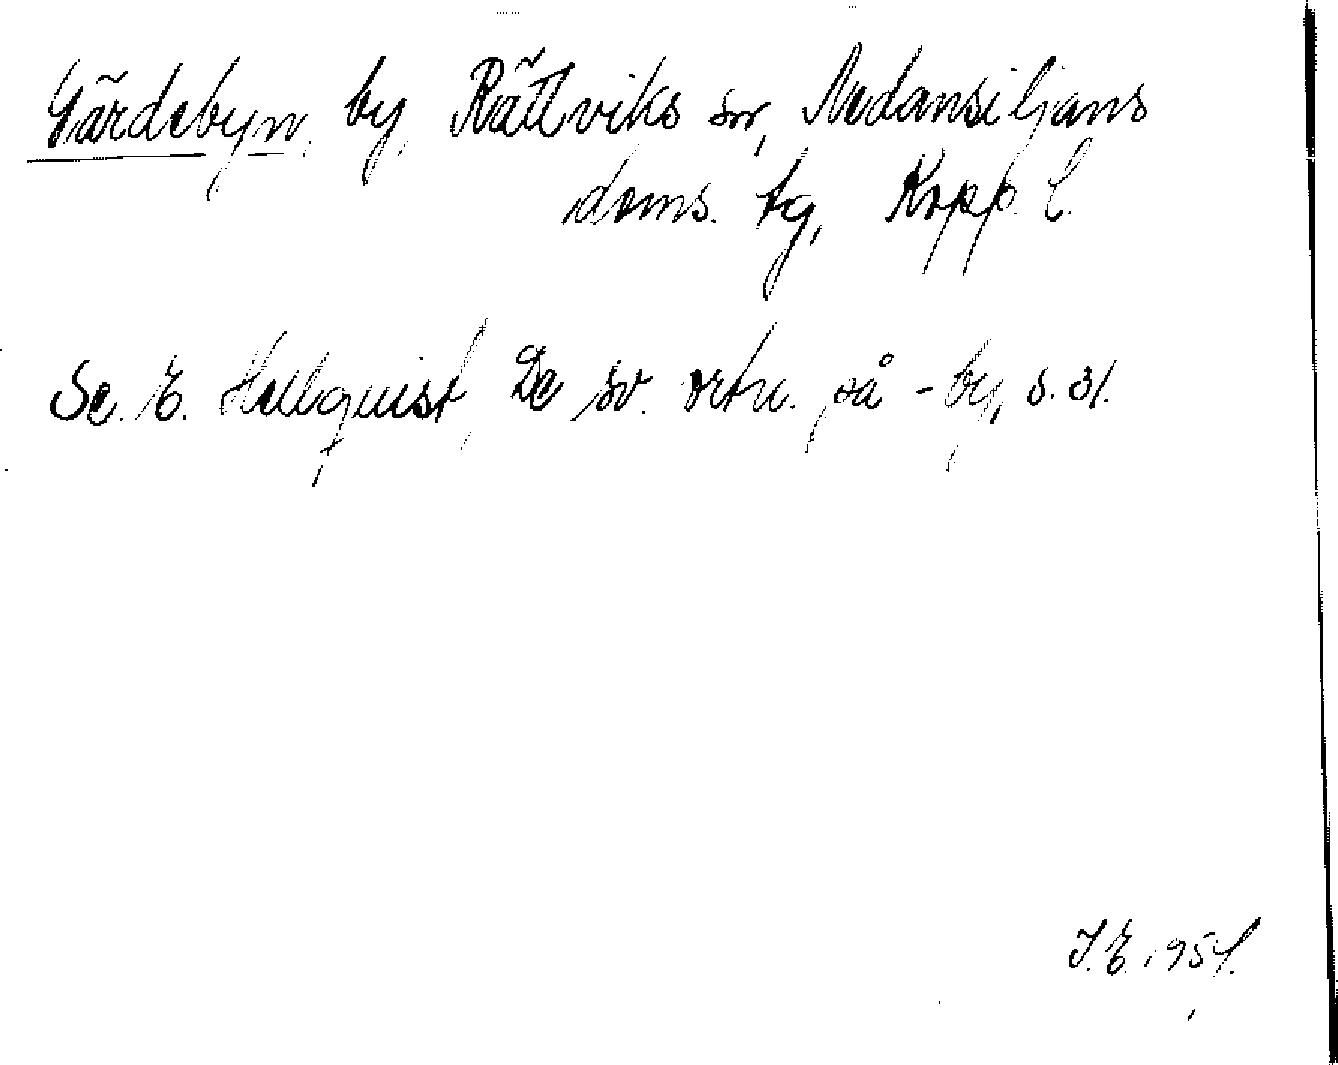 Gärdebyn, by, Rättviks sn, Nedansiljans
doms. tg, Kopp. l.
Se. E. Hellquist, De sv. ortn. på -by, s. 31.
J.E. 1954.